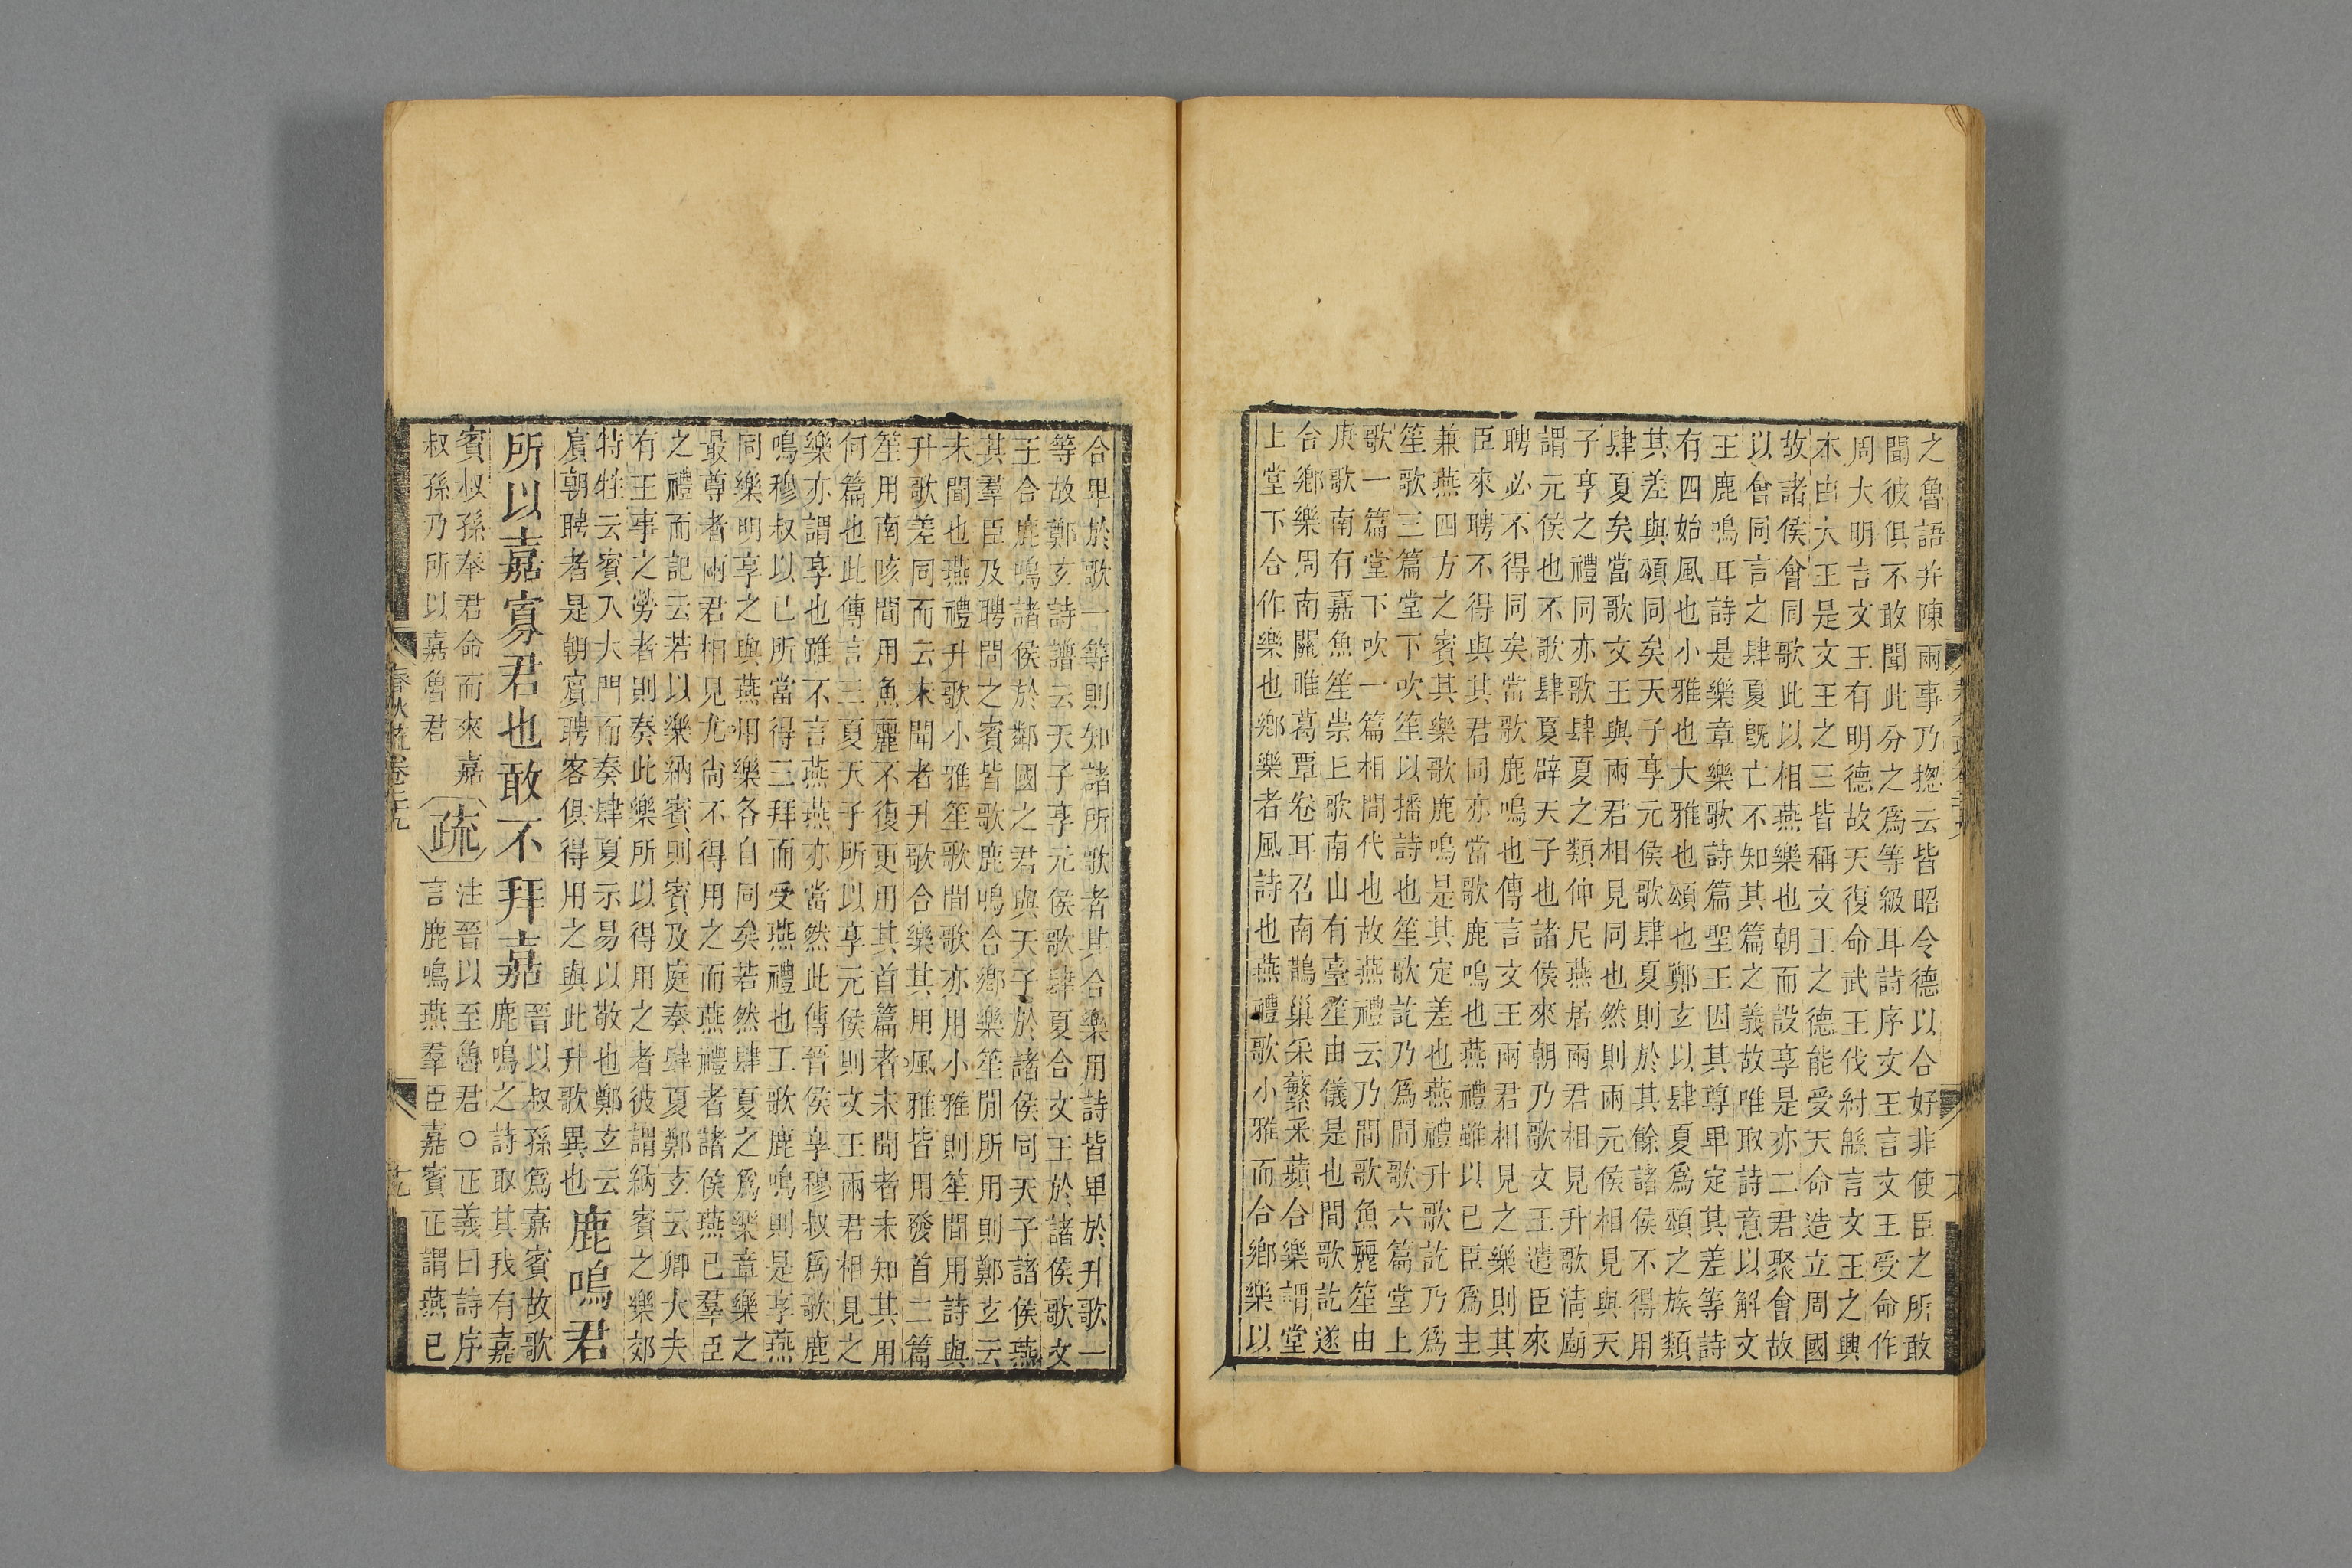 之魯語并陳兩事乃揔云皆昭令德以合好非使臣之所敢
聞彼俱不敢聞此分之爲等級耳詩序文王言文王受命作
周大明言文王有明德故天復命武王伐紂緜言文王之興
本由大王是文王之三皆稱文王之德能受天命造立周國
故諸侯會同歌此以相燕樂也朝而設享是亦二君聚會故
以會同言之肆夏旣亡不知其篇之義故唯取詩意以解文
王鹿鳴耳詩是樂章樂歌詩篇聖王因其尊卑定其差等詩
有四始風也小雅也大雅也頌也鄭玄以肆夏爲頌之族類
其差與頌同矣天子享元侯歌肆夏則於其餘諸侯不得用
肆夏矣當歌文王與兩君相見同也然則兩元侯相見與天
子享之禮同亦歌肆夏之類仲尼燕居兩君相見升歌淸廟
謂元侯也不歌肆夏辟天子也諸侯來朝乃歌文王遣臣來
聘必不得同矣當歌鹿鳴也傳言文王兩君相見之樂則其
臣來聘不得與其君同亦當歌鹿鳴也燕禮雖以己臣爲主
兼燕四方之賓其樂歌鹿鳴是其定差也燕禮升歌訖乃爲
笙歌三篇堂下吹笙以播詩也笙歌訖乃爲間歌六篇堂上
歌一篇堂下吹一篇相間代也故燕禮云乃間歌魚麗笙由
庚歌南有嘉魚笙崇丘歌南山有臺笙由儀是也間歌訖遂
合鄉樂周南關雎葛覃卷耳召南鵲巢采蘩采蘋合樂謂堂
上堂下合作樂也鄉樂者風詩也燕禮歌小雅而合鄉樂以
合卑於歌一等則知諸所歌者其合樂用詩皆卑於升歌一
等故鄭玄詩譜云天子享元侯歌肆夏合文王於諸侯歌文
王合鹿鳴諸侯於鄰國之君與天子於諸侯同天子諸侯燕
其羣臣及聘問之賓皆歌鹿鳴合鄉樂笙間所用則鄭玄云
未聞也燕禮升歌小雅笙歌間歌亦用小雅則笙間用詩與
升歌差同而云未聞者升歌合樂其用風雅皆用發首二篇
笙用南陔間用魚麗不復更用其首篇者未聞者未知其用
何篇也此傳言三夏天子所以享元侯則文王兩君相見之
樂亦謂享也雖不言燕燕亦當然此傳晉侯享穆叔爲歌鹿
鳴穆叔以已所當得三拜而受燕禮也工歌鹿鳴則是享燕
同樂明享之與燕用樂各自同矣若然肆夏之爲樂章樂之
最尊者兩君相見尤尚不得用之而燕禮者諸侯燕已羣臣
之禮而記云若以樂納賓則賓及庭奏肆夏鄭玄云卿大夫
有王事之勞者則奏此樂所以得用之者彼謂納賓之樂郊
特牲云賓入大門而奏肆夏示易以敬也鄭玄云
賓朝聘者是朝賓聘客俱得用之與此升歌異也鹿鳴君
所以嘉寡君也敢不拜嘉
晉以叔孫爲嘉賓故歌
鹿鳴之詩取其我有嘉
賓叔孫奉君命而來嘉
叔孫乃所以嘉魯君
疏
注晉以至魯君○正義曰詩序
言鹿鳴燕羣臣嘉賓正謂燕已